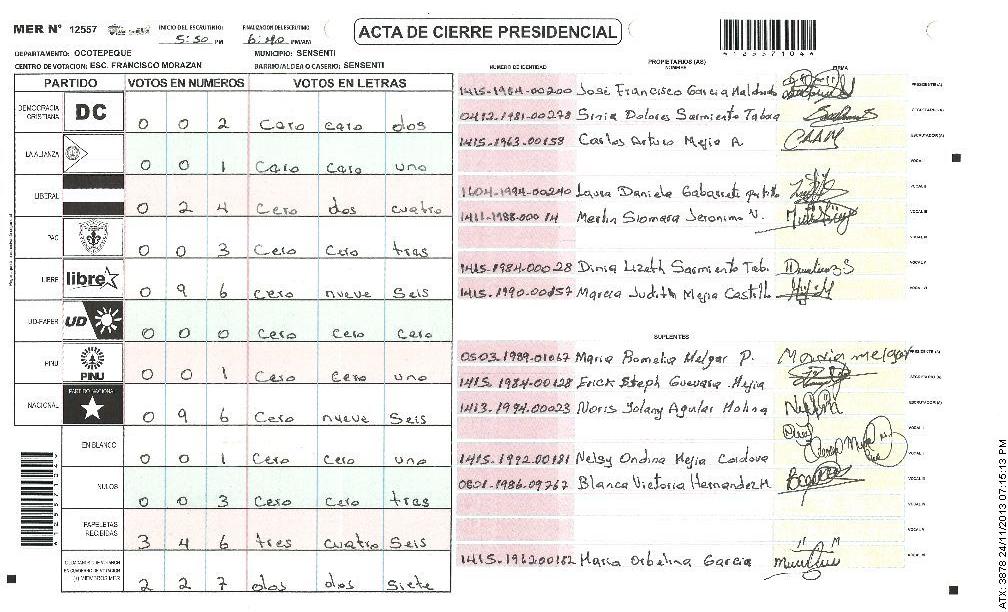 MER N° 12557
INICIO DEL ESCRUTINIO: 5:50 PM
FINALIZACION DEL ESCRUTINIO: 6:40 PM/AM
ACTA DE CIERRE PRESIDENCIAL
DEPARTAMENTO: OCOTEPEQUE
MUNICIPIO: SENSENTI
CENTRO DE VOTACION: ESC. FRANCISCO MORAZAN
BARRIO/ALDEA O CASERIO: SENSENTI
PARTIDO VOTOS EN NUMEROS VOTOS EN LETRAS
DEMOCRACIA CRISTIANA DC 0 0 2 Cero cero dos
LA ALIANZA 0 0 1 Cero Cero uno
LIBERAL 0 2 4 Cero dos cuatro
PAC 0 0 3 Cero Cero tres
LIBRE libre 0 9 6 cero nueve Seis
UD-FAPER UD 0 0 0 Cero Cero Cero
PINU PINU 0 0 1 Cero Cero uno
NACIONAL PARTIDO NACIONAL 0 9 6 Cero nueve Seis
EN BLANCO 0 0 1 Cero Cero uno
NULOS 0 0 3 Cero Cero tres
PAPELETAS RECIBIDAS 3 4 6 tres cuatro Seis
2 2 7 dos dos Siete
NUMERO DE IDENTIDAD PROPIETARIOS (AS) NOMBRE FIRMA
1415-1984-00200 José Francisco Garcia Maldonado PRESIDENTE(A)
0412-1981-00278 Sinia Dolores Sarmiento Tabora SECRETARIO(A)
1415-1963-00158 Carlos Arturo Mejia A. ESCRUTADOR(A)
VOCAL I
1604-1994-00240 Laura Daniela Gabarrete VOCAL II
1411-1988-000 Merlin Siomara Jeronimo V. VOCAL III
VOCAL IV
1415-1984-00028 Dinia Lizeth Sarmiento Tab. VOCAL V
1415-1990-00857 Marcia Judith Mejia Castillo VOCAL VI
SUPLENTES
0503-1989-01067 Maria Romelia Melgar P. Maria melgar PRESIDENTE(A)
1415-1984-00128 Erick Steph Guevara Mejia SECRETARIO(A)
1413-1994-00023 Noris Yolany Aguilar Molina ESCRUTADOR(A)
VOCAL I
1415-1992-00181 Nelsy Ondina Mejia Cordova VOCAL II
0801-1986-09767 Blanca Victoria Hernandez M VOCAL III
VOCAL IV
VOCAL V
1415-1962-00162 Maria Orbelina Garcia VOCAL VI
ATX: 3878 24/11/2013 07:15:13 PM